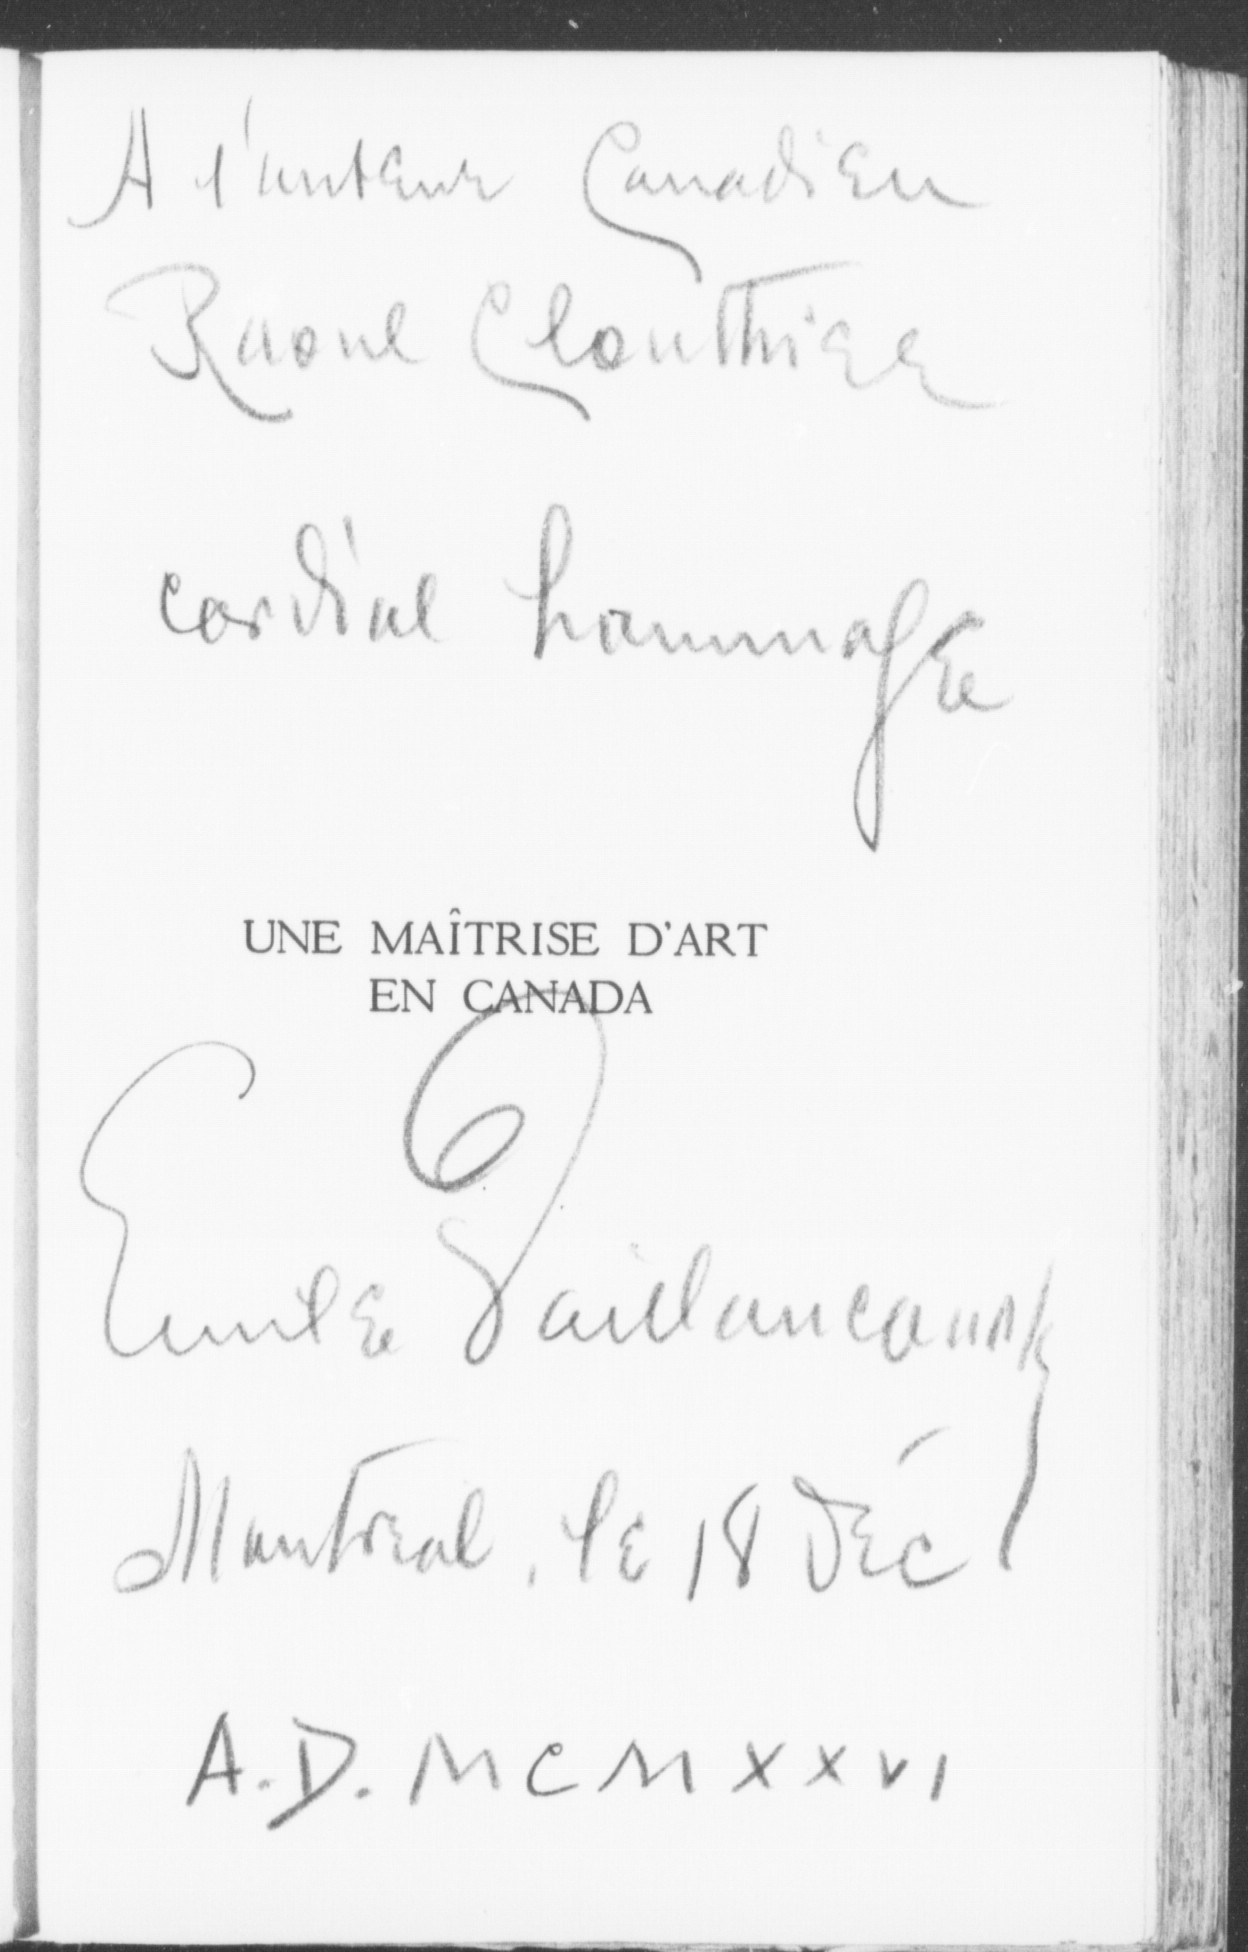 A l'auteur Canadien
Raoul Clouthier
cordial hommage
UNE MAÎTRISE D'ART
EN CANADA
Emile Vaillancourt
Montreal, le 18 Déc
A.D. MCMXXVI